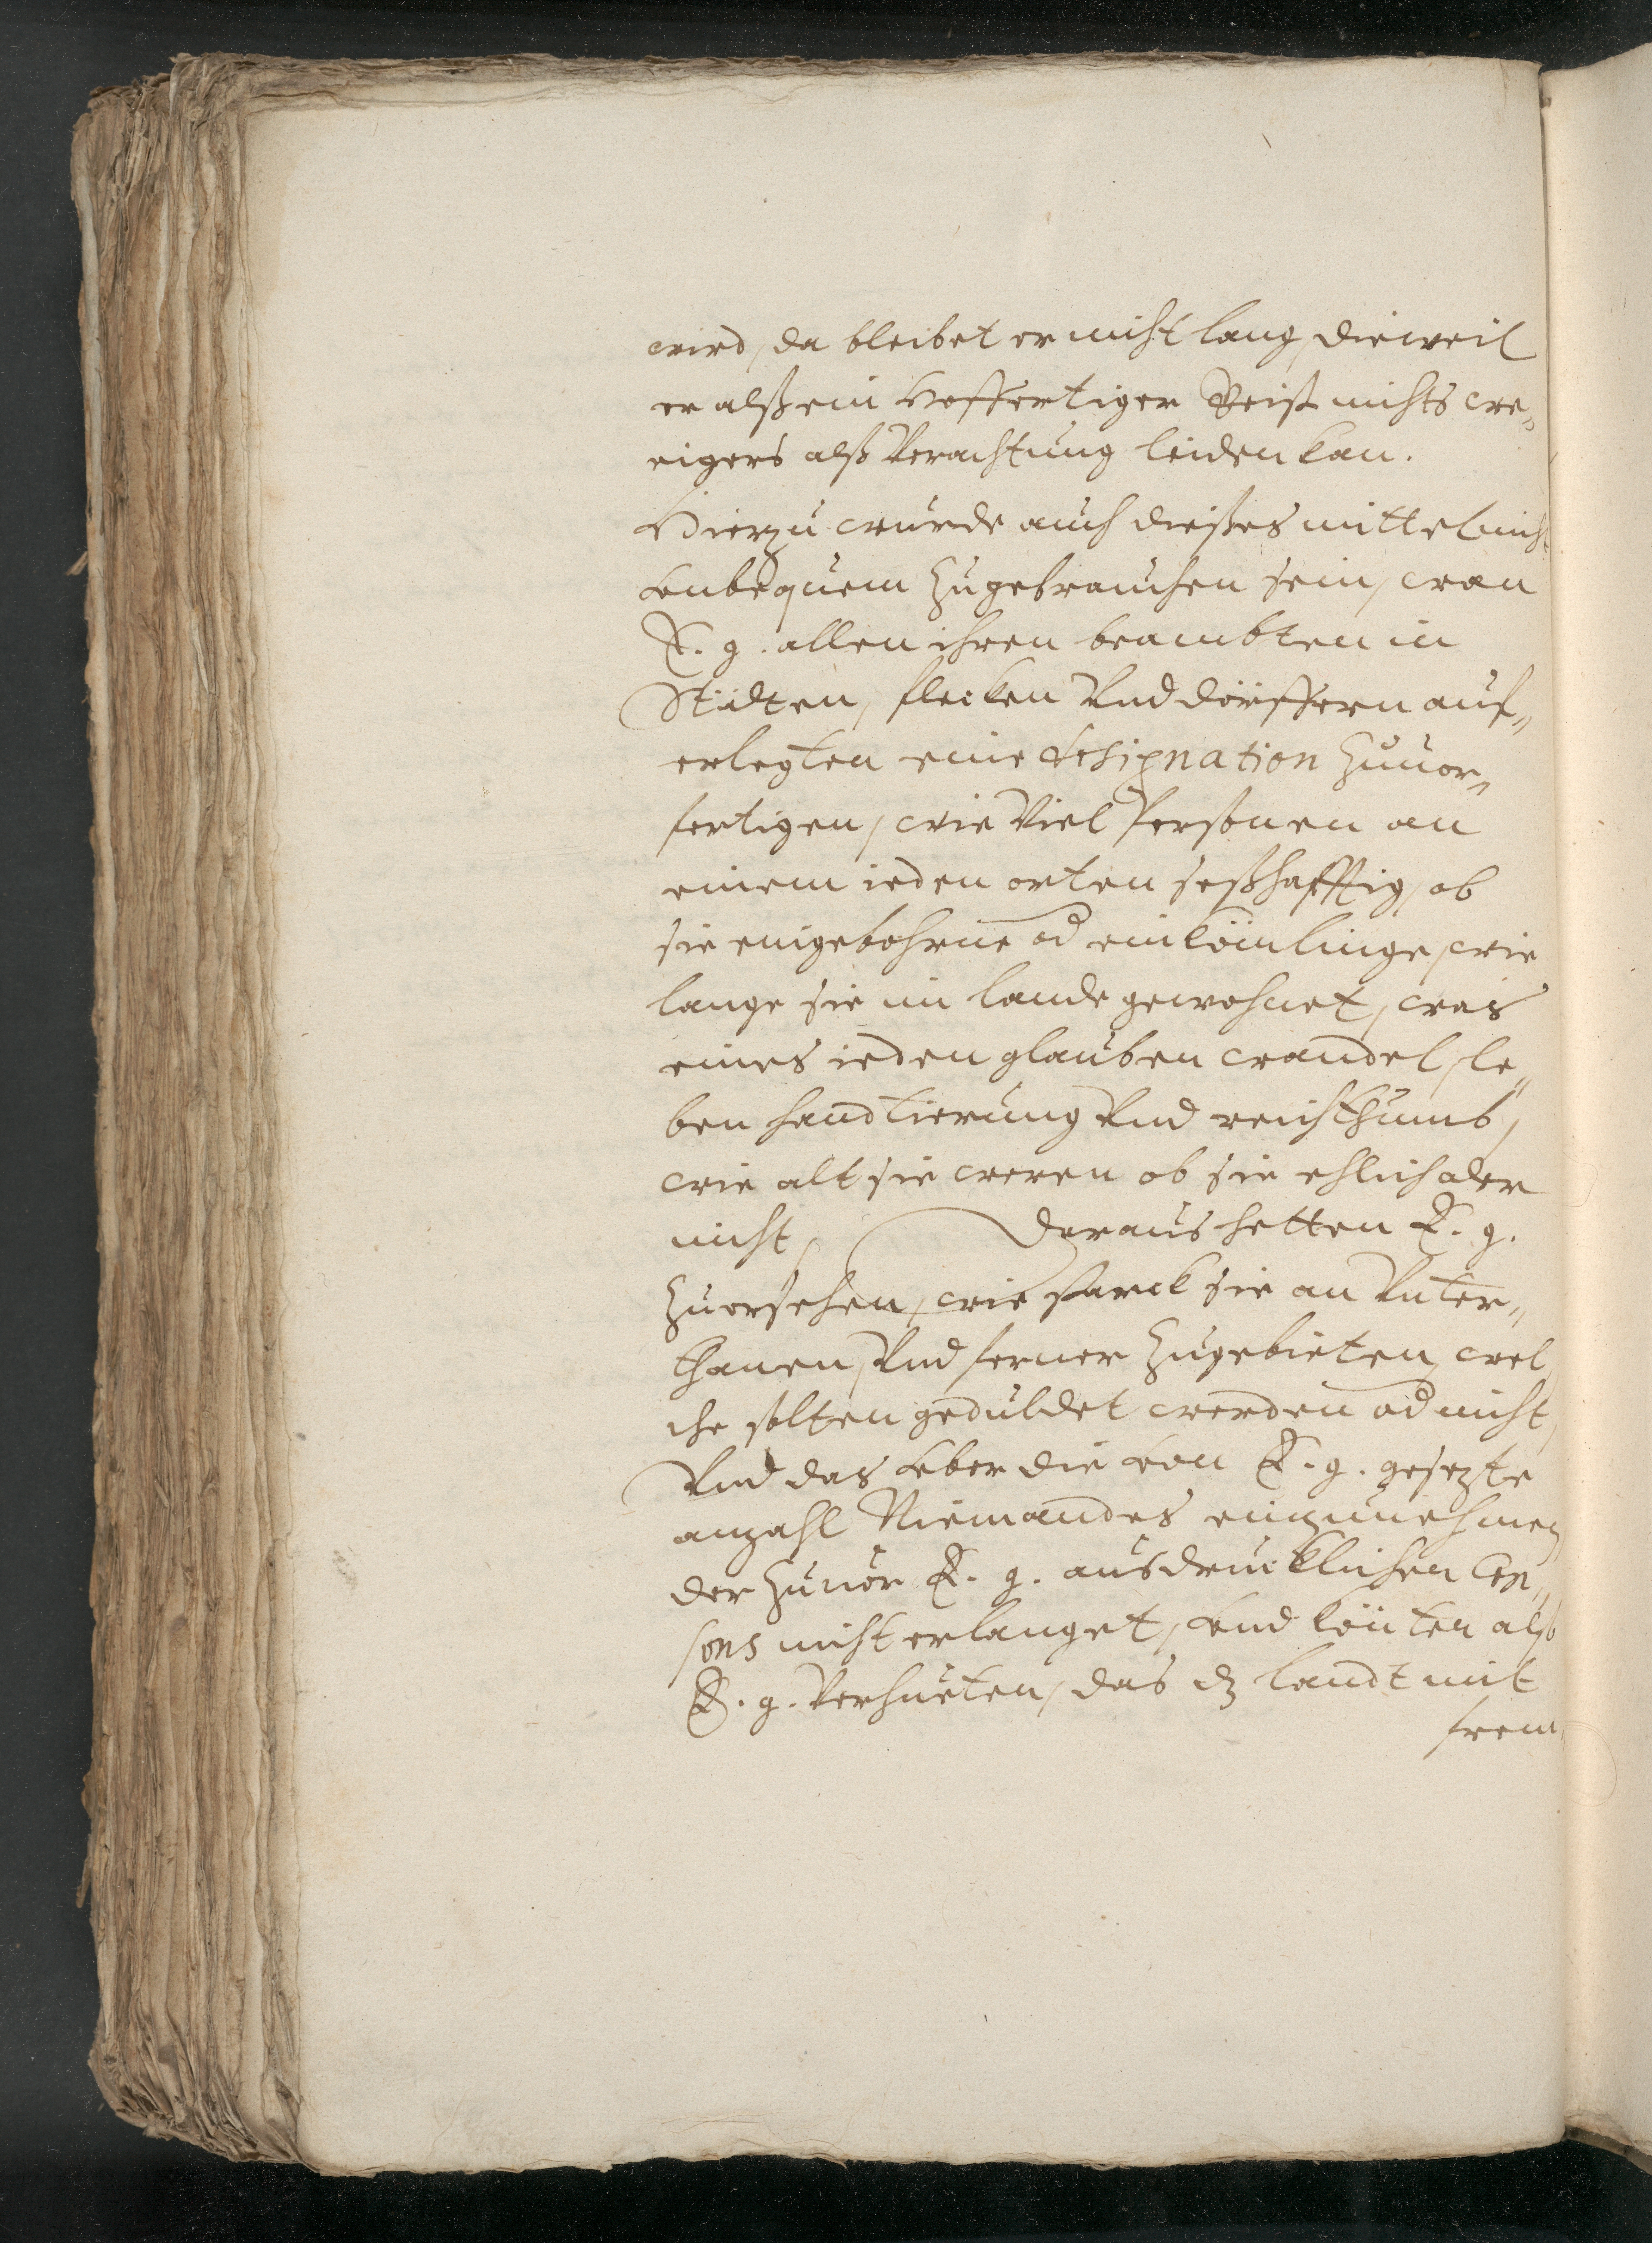 wird, da bleibet er nicht lang, dieweil
er alß ein hoffertiger Geist nichts we„
nigers alß Verachtung leiden kan.
Hierzu wurde auch dießes mittel nicht
vnbequem zugebrauchen sein, wan
E. g. allen ihren beambten in
Städten, flecken Vnd dörffern auf„
erlegten eine designation zuuor„
fertigen, wie Viel Personen an
einem ieden orten seßhafftig, ob
sie eingebohrne od einkömlinge, wie
lange sie im lande gewohnet, was
eines ieden glauben wandel, le„
ben handtierung Vnd reichthumb,
wie alt sie weren ob sie ehlich oder
nicht, Daraus hetten E. g.
zuersehen, wie starck sie an Vnter„
thanen, Vnd ferner zugebieten, wel
che solten geduldet werden od nicht,
Vnd das vber die von E. g. gesezte
anzahl Niemandes einzunehmen
der zuuor E. g. ausdrucklichen Con„
sens nicht erlanget, vnd könten also
E. g. Verhueten, das dz landt mit
frem